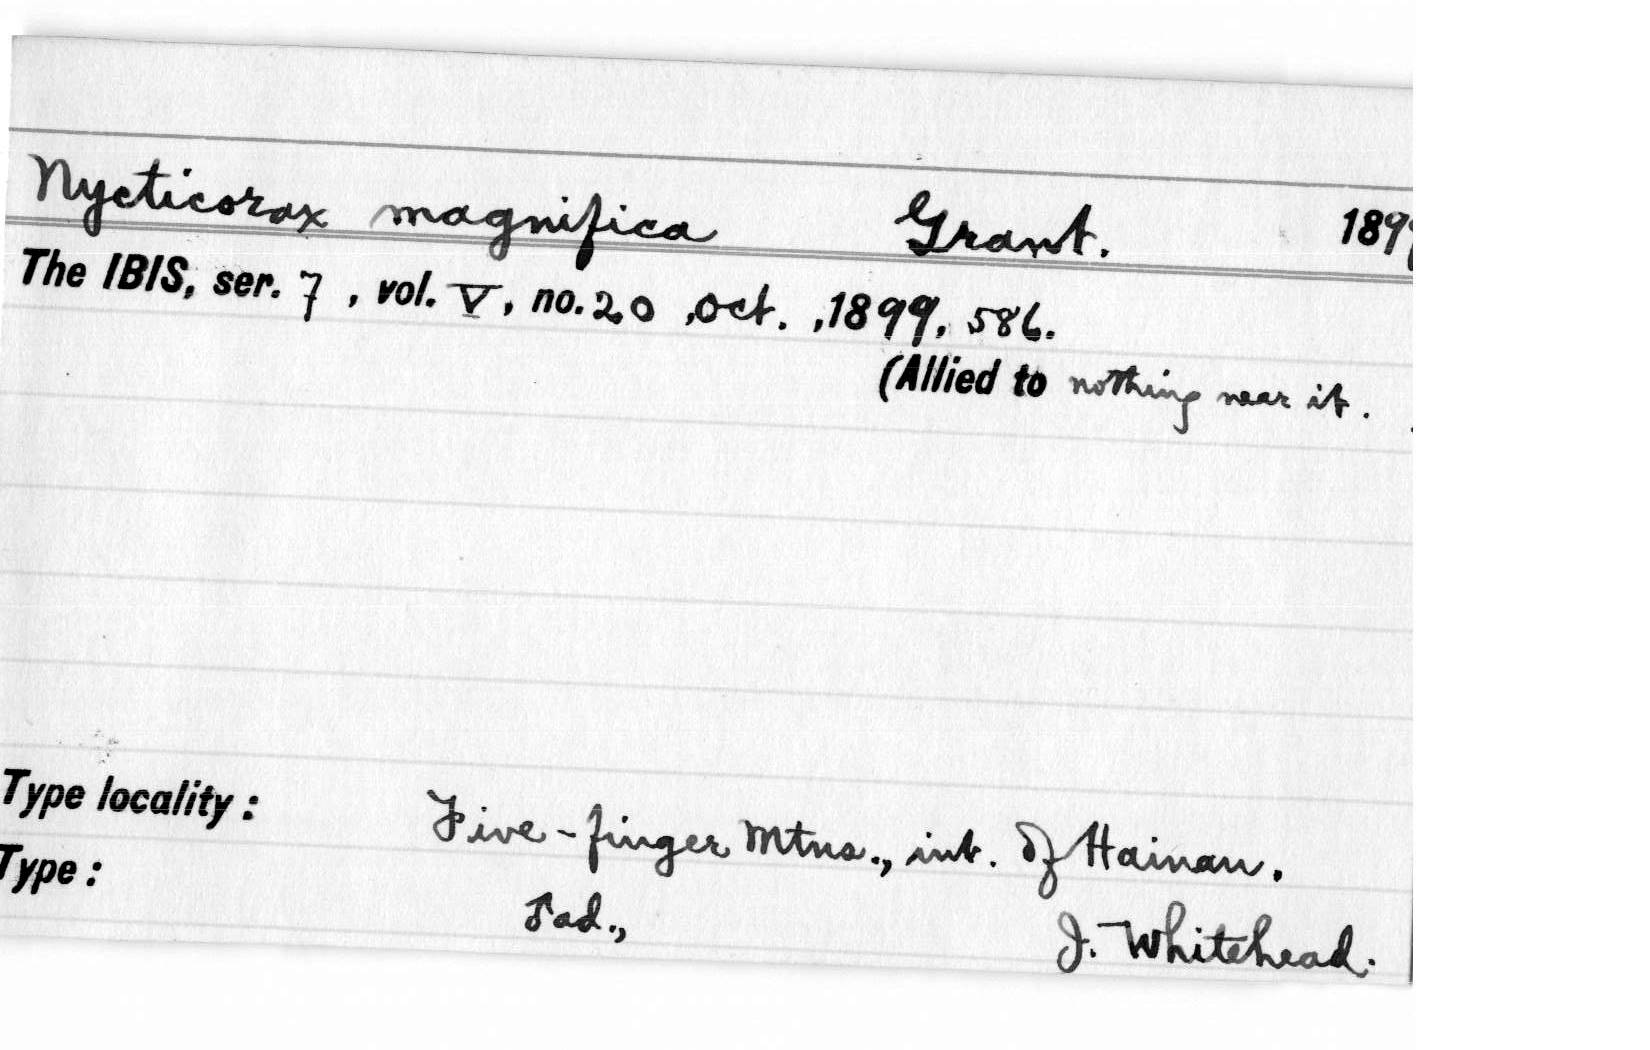 Nycticorax magnifica Grant. 1899
The IBIS, ser. 7, vol. V, no. 20, oct., 1899, 586.
(Allied to nothing near it.
Type locality: Five-finger Mtns., int. of Hainan.
Type: ♂ ad., J. Whitehead.